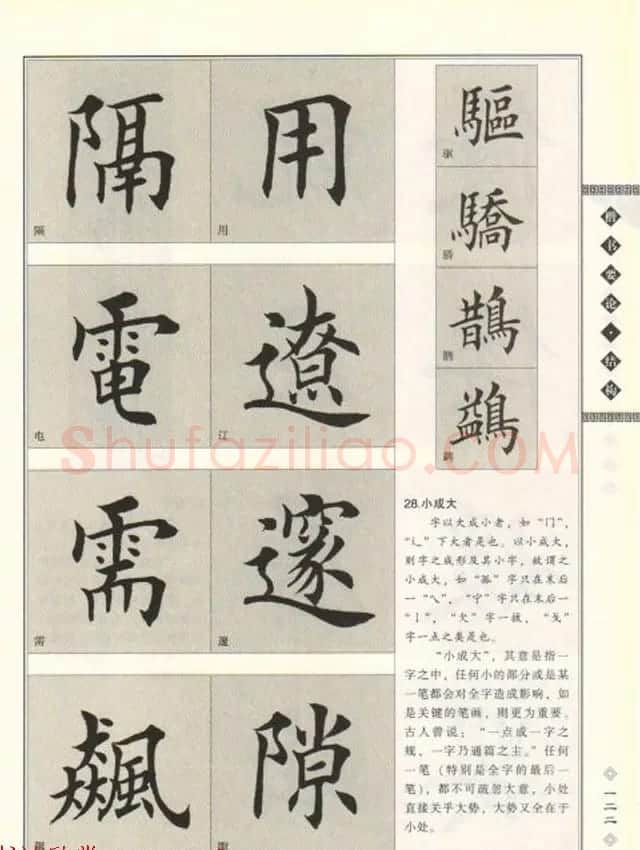 隔
隔
用
用
電
电
遼
辽
需
需
邃
邃
飆
隙
驅
驱
驕
骄
鵲
鹊
鷁
28.小成大
字以大成小者，如“门”，
“辶”下大者是也。以小成大，
则字之成形及其小字，故谓之
小成大，如“孤”字只在末后
一“乀”，“宁”字只在末后一
“亅”，“欠”字一捺，“戈”
字一点之类是也。
“小成大”，其意是指一
字之中，任何小的部分或是某
一笔都会对全字造成影响，如
是关键的笔画，则更为重要。
古人曾说：“一点成一字之
规，一字乃通篇之主。”任何
一笔（特别是全字的最后一
笔），都不可疏忽大意，小处
直接关乎大势，大势又全在于
小处。
楷书要论·结构
一二二
Shufaziliao.COM